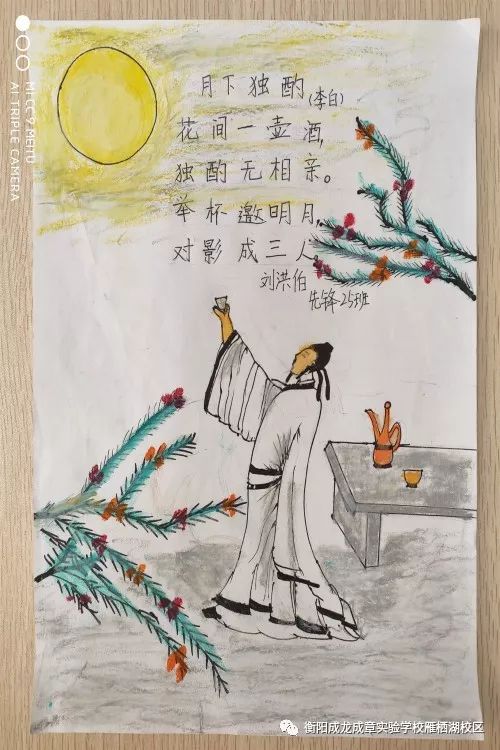 月下独酌
(李白)
花间一壶酒,
独酌无相亲。
举杯邀明月,
对影成三人。
刘洪伯
先锋25班
MI CC 9 MEITU
AI TRIPLE CAMERA
衡阳成龙成章实验学校雁栖湖校区